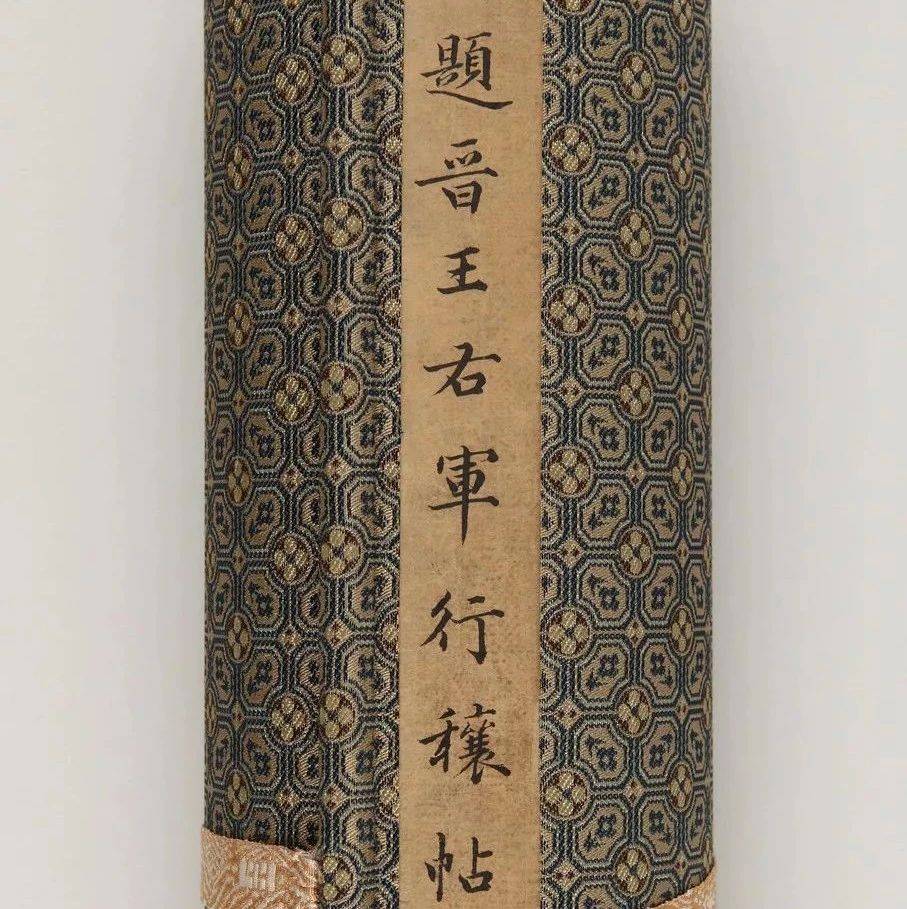 題晉王右軍行穰帖